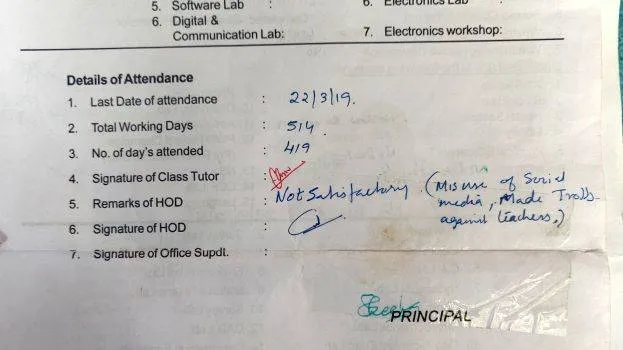 5. Software Lab :
6. Electronics Lab :
6. Digital &
Communication Lab:
7. Electronics workshop:
Details of Attendance
1. Last Date of attendance : 22/3/19.
2. Total Working Days : 514.
3. No. of day's attended : 419
4. Signature of Class Tutor :
5. Remarks of HOD : Not Satisfactory. (Misuse of Social
media, Made Trolls
against teachers.)
6. Signature of HOD :
7. Signature of Office Supdl. :
PRINCIPAL